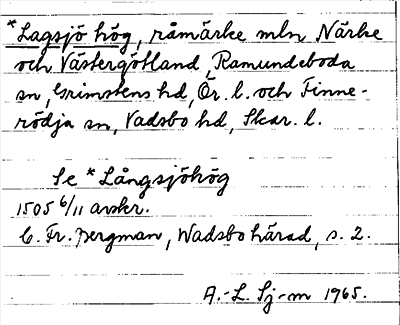 *Lagsjö hög, råmärke mln Närke
och Västergötland, Ramundeboda
sn, Grimstens hd, Ör. l. och Finne-
rödja sn, Vadsbo hd, Skar. l.
Se *Långsjöhög
1505 6/11 avskr.
C. Fr. Bergman, Wadsbo härad, s. 2.
A.-L. Sj-m 1965.